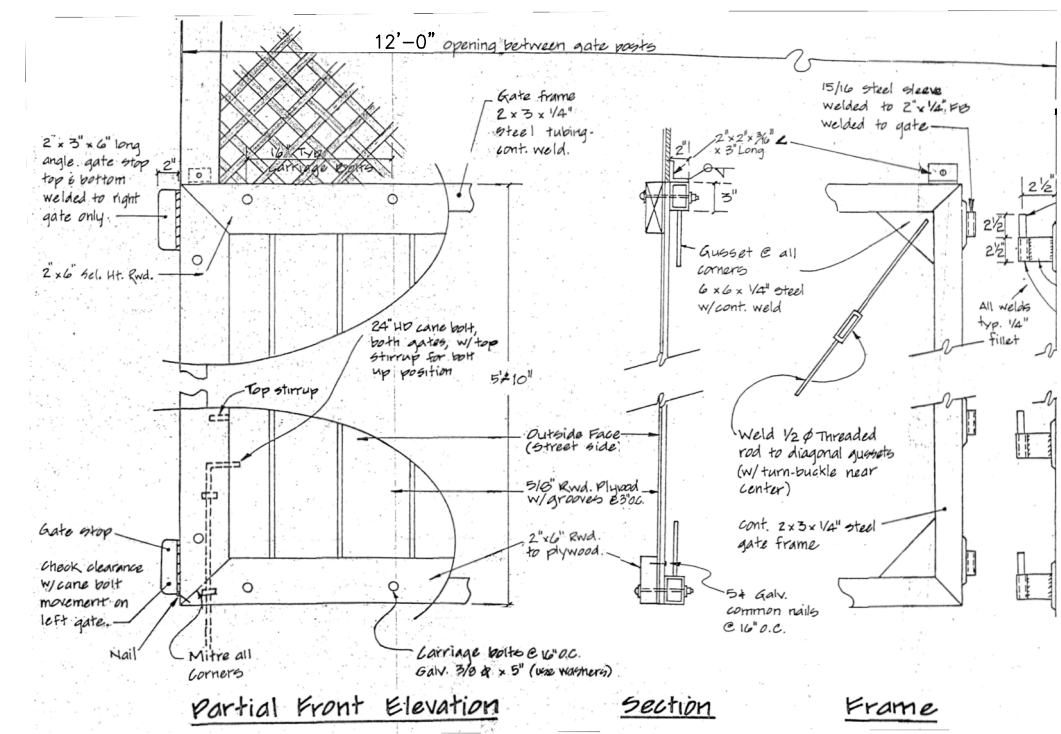 12'-0" opening between gate posts
2" x 3" x 6" long
angle. gate stop
top & bottom
welded to right
gate only.
2"
16" Typ.
Carriage Bolts
Gate frame
2 x 3 x 1/4"
steel tubing-
cont. weld.
2" x 6" Sel. Ht. Rwd.
24" HD cane bolt,
both gates, w/top
stirrup for bolt
up position
Top stirrup
Gate stop
Check clearance
w/cane bolt
movement on
left gate.
Nail
Mitre all
Corners
Carriage bolts @ 16" O.C.
Galv. 3/8 ф x 5" (use washers)
Partial Front Elevation
2"
2"x2"x 3/16" ∠
x 3" Long
3"
Gusset @ all
corners
6 x 6 x 1/4" steel
w/cont. weld
Outside Face
(Street side)
5/8" Rwd. Plywood
w/grooves @ 3" O.C.
2"x6" Rwd.
to plywood.
Galv.
common nails
@ 16" O.C.
Section
15/16 steel sleeve
welded to 2" x 1/4" FB
welded to gate
2 1/2"
2 1/2"
2 1/2"
All welds
typ. 1/4"
fillet
Weld 1/2 ф Threaded
rod to diagonal gussets
(w/ turn-buckle near
center)
Cont. 2 x 3 x 1/4" steel
gate frame
Frame